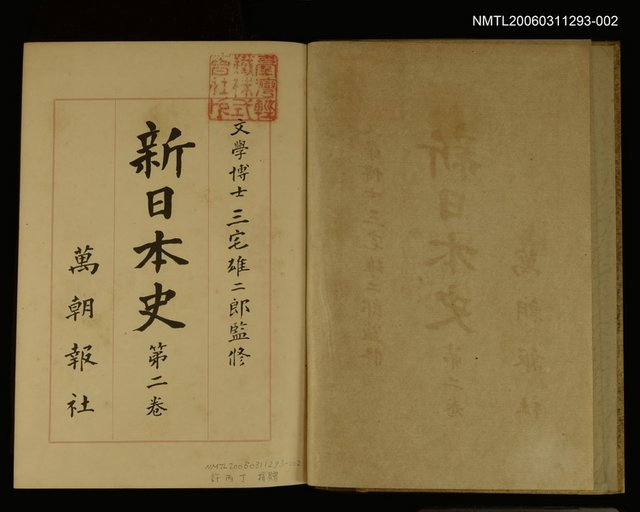 NMTL20060311293-002
文學博士 三宅雄二郎監修
新日本史 第二卷
萬朝報社
NMTL20060311293-002
許丙丁 捐贈